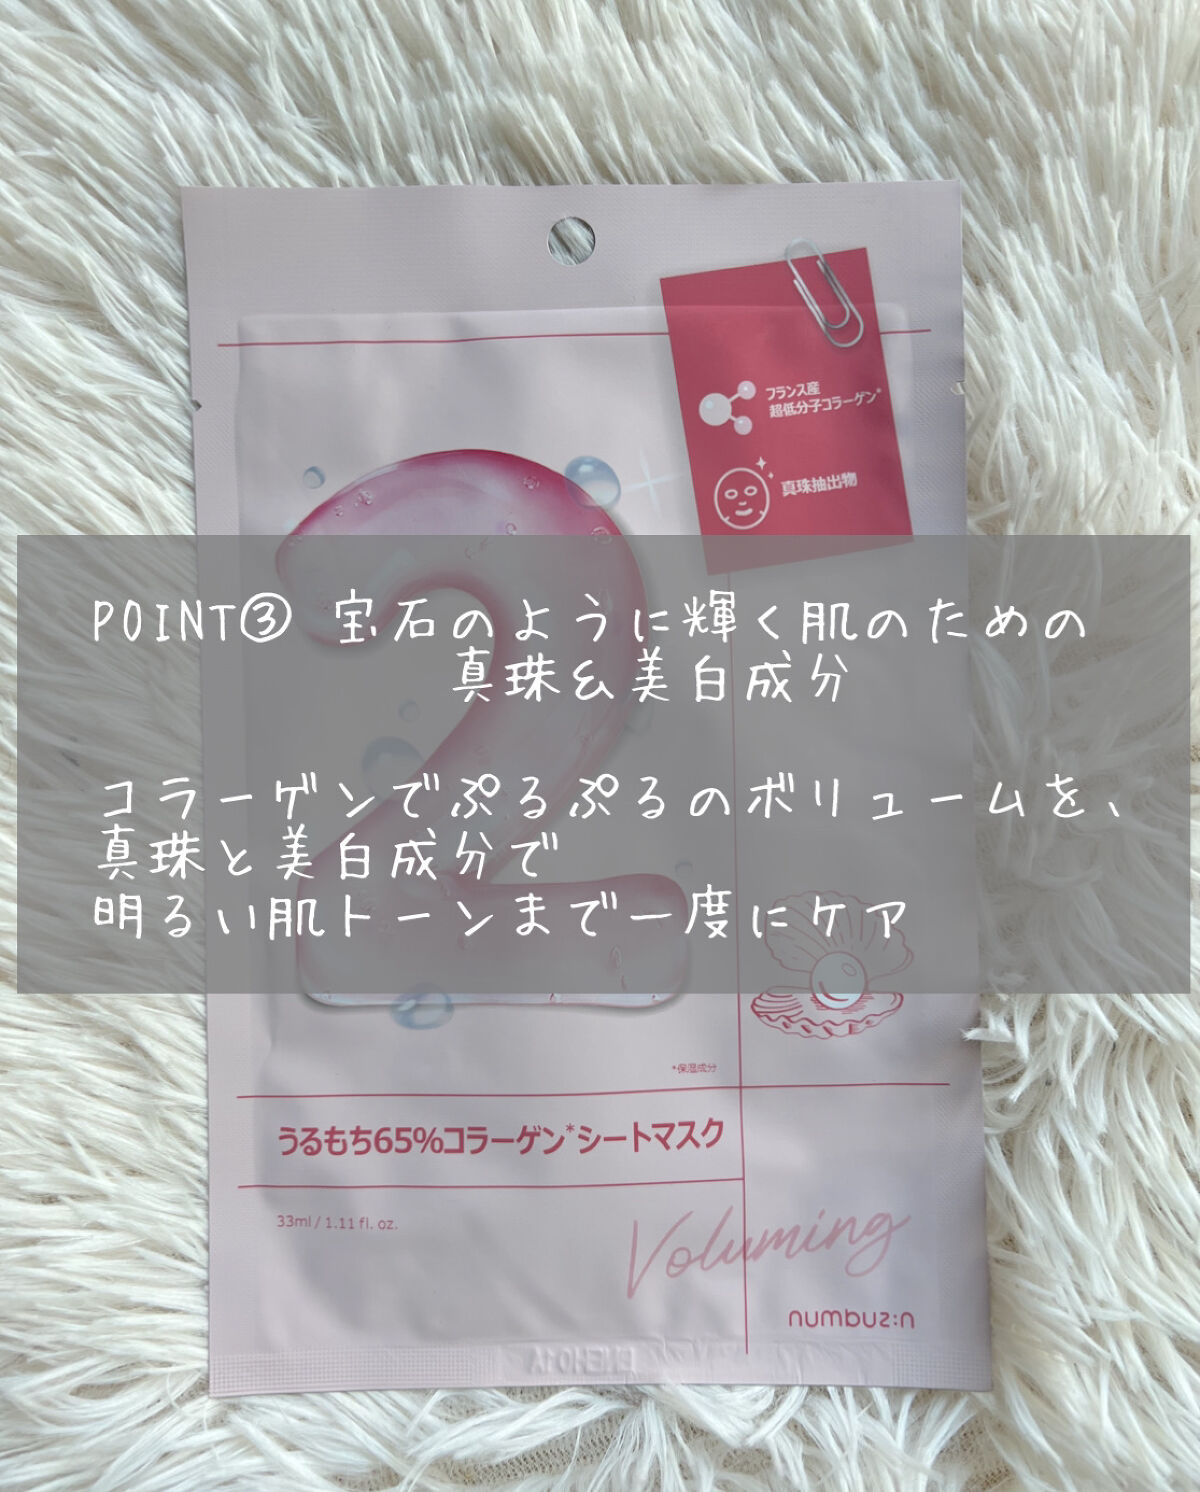 フランス産
超低分子コラーゲン*
真珠抽出物
POINT③ 宝石のように輝く肌のための
真珠&美白成分
コラーゲンでぷるぷるのボリュームを、
真珠と美白成分で
明るい肌トーンまで一度にケア
*保湿成分
うるもち65%コラーゲン*シートマスク
33ml / 1.11 fl. oz.
Voluming
numbuz:n